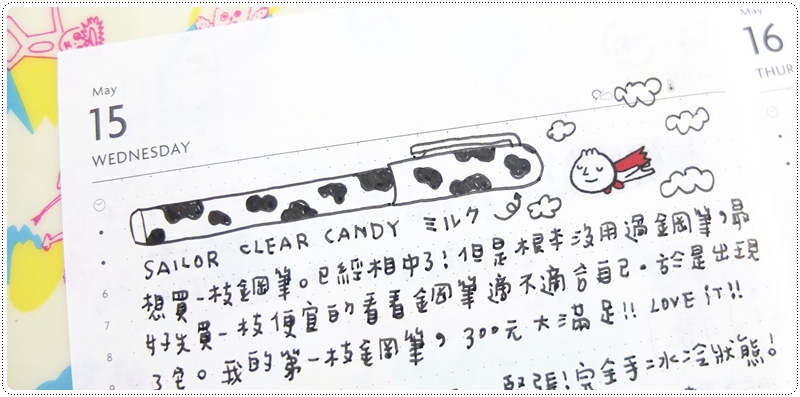 May
15
WEDNESDAY
May
16
THUR
SAILOR CLEAR CANDY ミルク
想買一枝鋼筆。已經相中了!但是根本沒用過鋼筆,最
好先買一枝便宜的看看鋼筆適不適合自己。於是出現
了它。我的第一枝鋼筆,300元大滿足!! LOVE IT!!
緊張!完全手冰冷狀態!
6
7
8